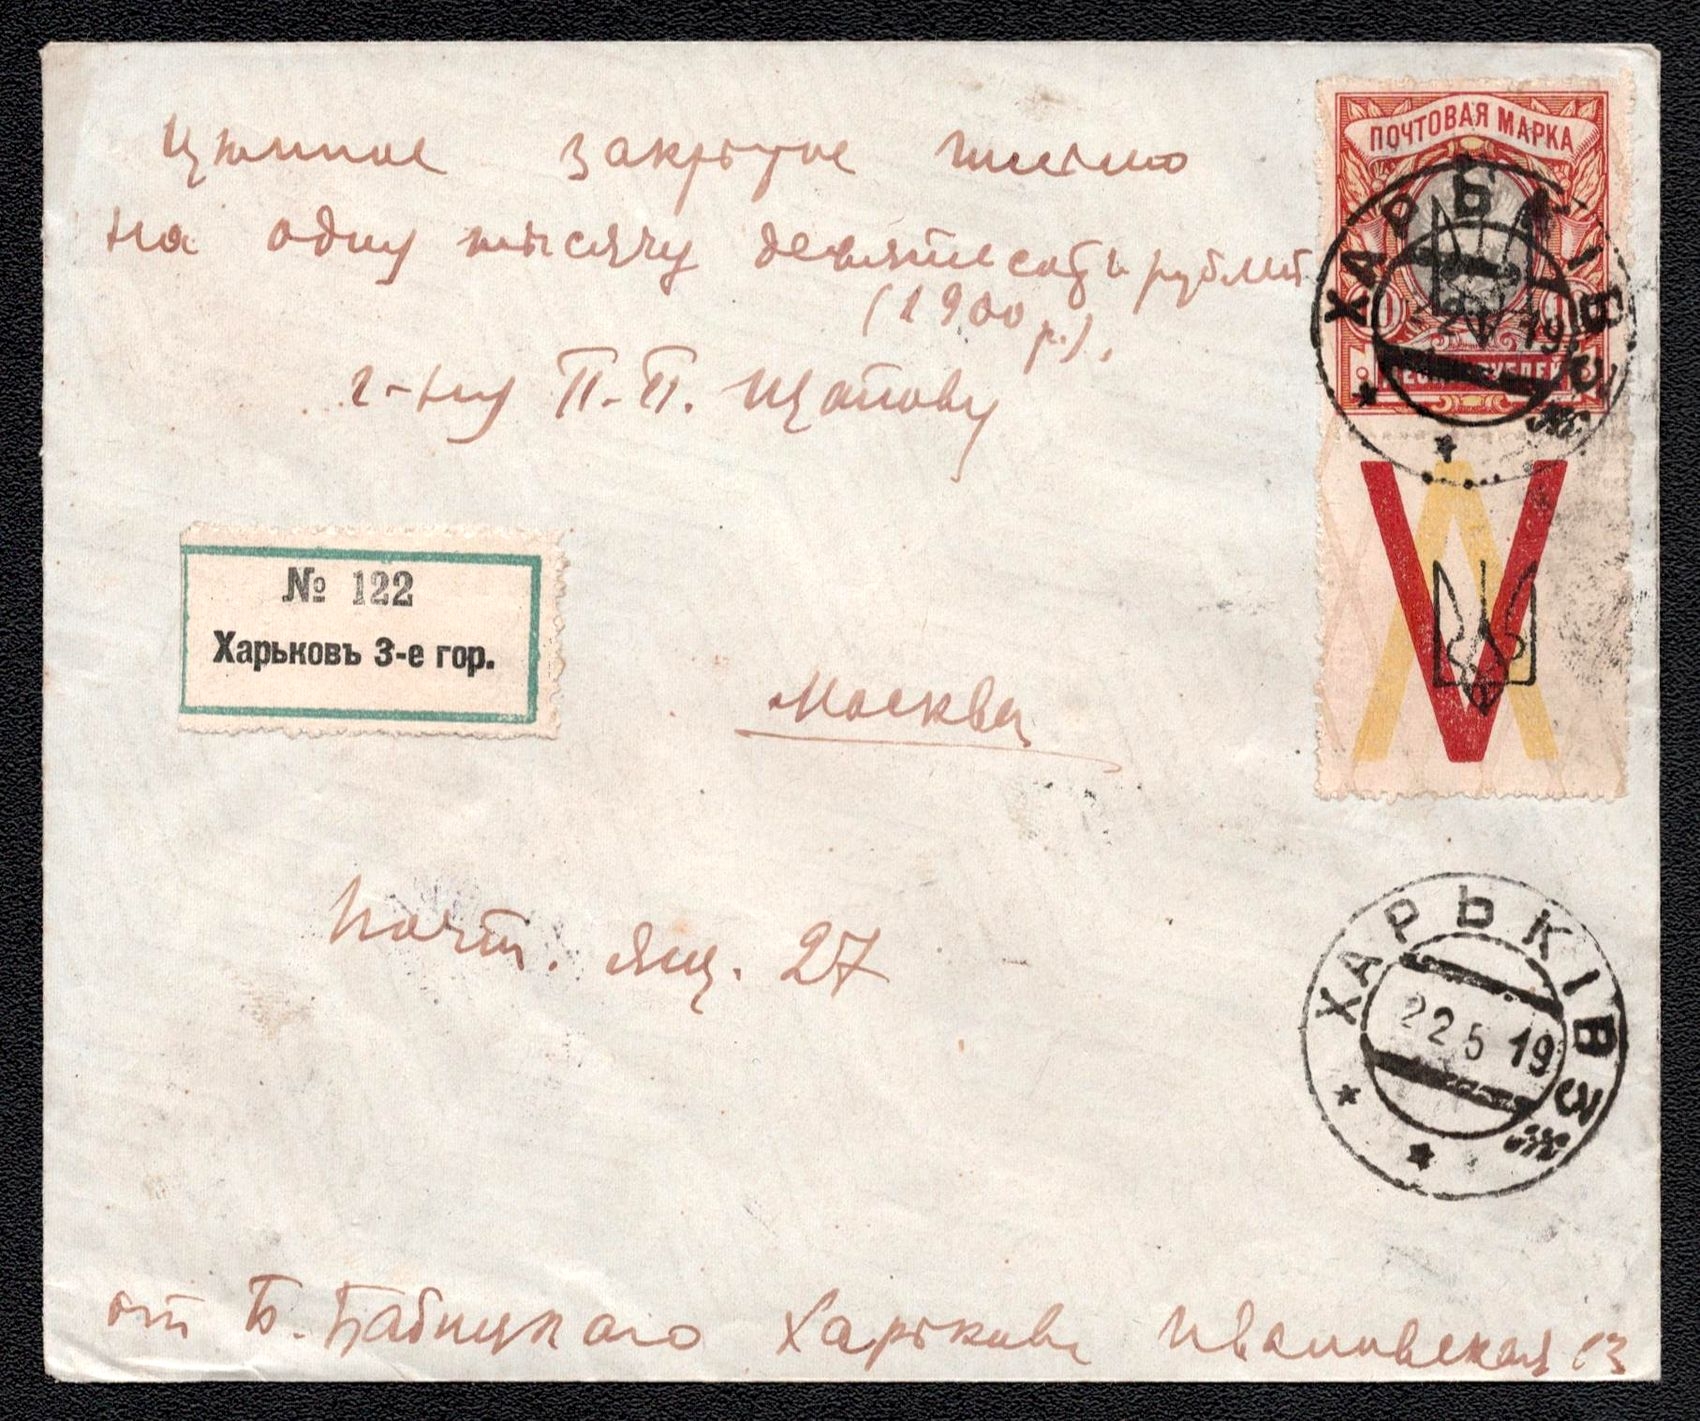 Ценное закрытое письмо
на одну тысячу девятьсотъ рублей
(1900 р.).
г-ну П. П. Щапову
ПОЧТОВАЯ МАРКА
ХАРЬКІВ 3
22 5 19
№ 122
Харьковъ 3-е гор.
Москва
Почт. ящ. 27
ХАРЬКІВ 3
22 5 19
от Б. Бабицкаго Харьков Ивановская 13